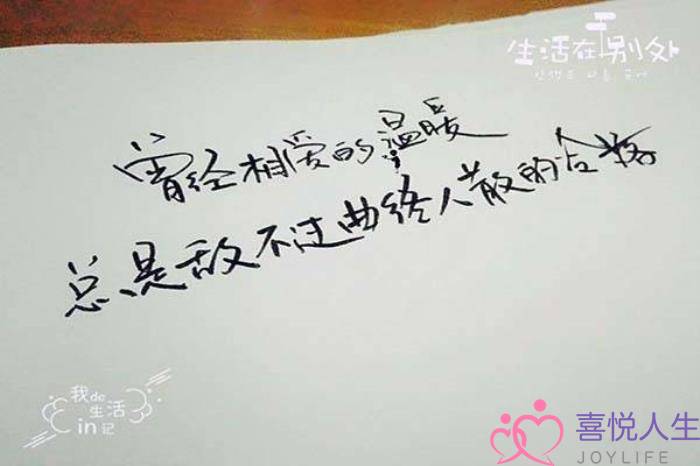 生活在别处
曾经相爱的温暖
总是敌不过曲终人散的
我de
生活
in记
喜悦人生
JOYLIFE